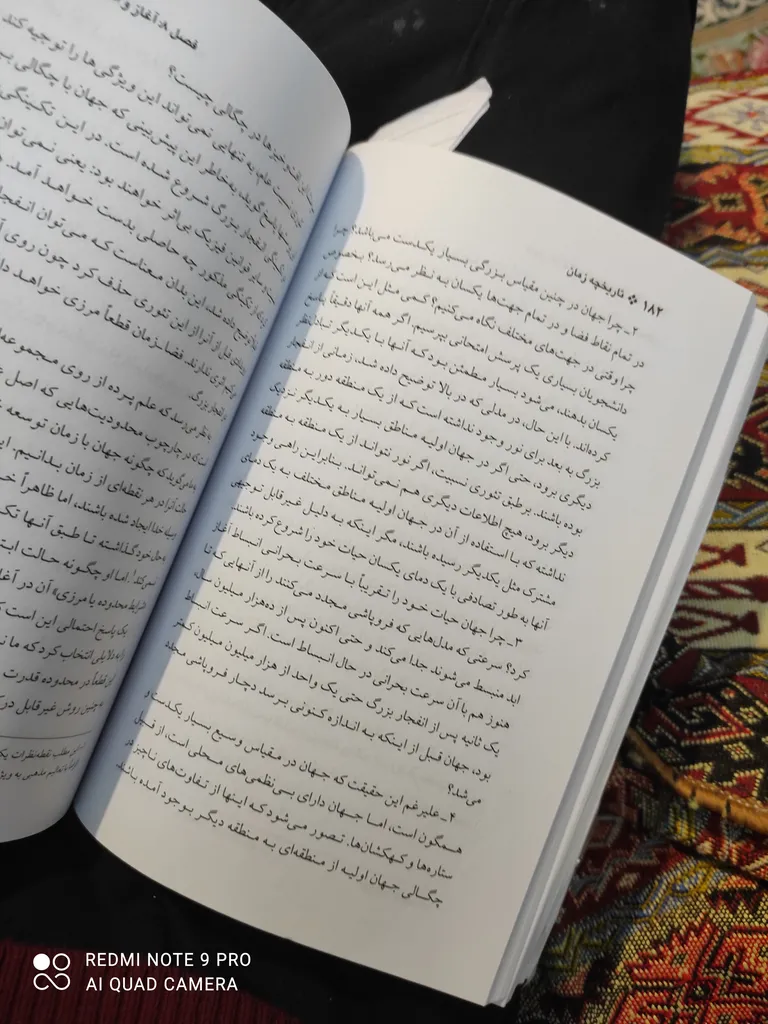 ۱۸۲ ❖ تاریخچه زمان
۲ـ چرا جهان در چنین مقیاس بزرگی بسیار یکدست می‌باشد؟ چرا
در تمام نقاط فضا و در تمام جهت‌ها یکسان به نظر می‌رسد؟ بخصوص
چرا وقتی در جهت‌های مختلف نگاه می‌کنیم؟ کمی مثل این است که از
دانشجویان بسیاری یک پرسش امتحانی بپرسیم. اگر همه آنها دقیقاً پاسخ
یکسان بدهند، می‌شود بسیار مطمئن بود که آنها با یکدیگر تبادل‌نظر
کرده‌اند. با این حال، در مدلی که در بالا توضیح داده شد، زمانی از انفجار
بزرگ به بعد برای نور وجود نداشته است که از یک منطقه دور به منطقه
دیگری برود، حتی اگر در جهان اولیه مناطق بسیار به یکدیگر نزدیک
بوده باشند. برطبق تئوری نسبیت، اگر نور نتواند از یک منطقه به منطقه
دیگر برود، هیچ اطلاعات دیگری هم نمی‌تواند. بنابراین راهی وجود
نداشته که با استفاده از آن در جهان اولیه مناطق مختلف به یک دمای
مشترک مثل یکدیگر رسیده باشند، مگر اینکه به دلیل غیرقابل توجیهی
آنها به طور تصادفی با یک دمای یکسان حیات خود را شروع کرده باشند.
۳ـ چرا جهان حیات خود را تقریباً با سرعت بحرانی انبساط آغاز
کرد؟ سرعتی که مدل‌هایی که فروپاشی مجدد می‌کنند را از آنهایی که تا
ابد منبسط می‌شوند جدا می‌کند و حتی اکنون پس از ده‌هزار میلیون سال،
هنوز هم با آن سرعت بحرانی در حال انبساط است. اگر سرعت انبساط
یک ثانیه پس از انفجار بزرگ حتی یک واحد از هزار میلیون میلیون کمتر
بود، جهان قبل از اینکه به اندازه کنونی برسد دچار فروپاشی مجدد
می‌شد؟
۴ـ علیرغم این حقیقت که جهان در مقیاس وسیع بسیار یکدست و
همگون است، اما جهان دارای بی‌نظمی‌های محلی است، از قبیل
ستاره‌ها و کهکشان‌ها. تصور می‌شود که اینها از تفاوت‌های ناچیز در
چگالی جهان اولیه از منطقه‌ای به منطقه دیگر بوجود آمده باشند.
فصل ۸: آغاز و
در چگالی چیست؟
به تنهایی نمی‌تواند این ویژگی‌ها را توجیه کند
به‌خاطر این پیش‌بینی که جهان با چگالی
انفجار بزرگ شروع شده است. در این تکینگی
قوانین فیزیک بی‌اثر خواهند بود: یعنی نمی‌توان
تکینگی مذکور چه حاصلی بدست خواهد آمد.
توضیح داده شد، این بدان معناست که می‌توان انفجار
قبل از آنرا از این تئوری حذف کرد چون روی
ندارند. فضا-زمان قطعاً مرزی خواهد
انفجار بزرگ.
به نظر می‌رسد که علم پرده از روی مجموعه
است که در چارچوب محدودیت‌هایی که اصل
به ما می‌گوید که چگونه جهان با زمان توسعه
حالت آنرا در هر نقطه‌ای از زمان بدانیم.
خدا ایجاد شده باشند، اما ظاهراً
به حال خود گذاشته تا طبق آنها
اما او چگونه حالت
«شرایط محدوده یا مرزی» آن در
یک پاسخ احتمالی این است
به دلایلی انتخاب کرد که ما
این قطعاً در محدوده قدرت
به چنین روش غیرقابل
REDMI NOTE 9 PRO
AI QUAD CAMERA